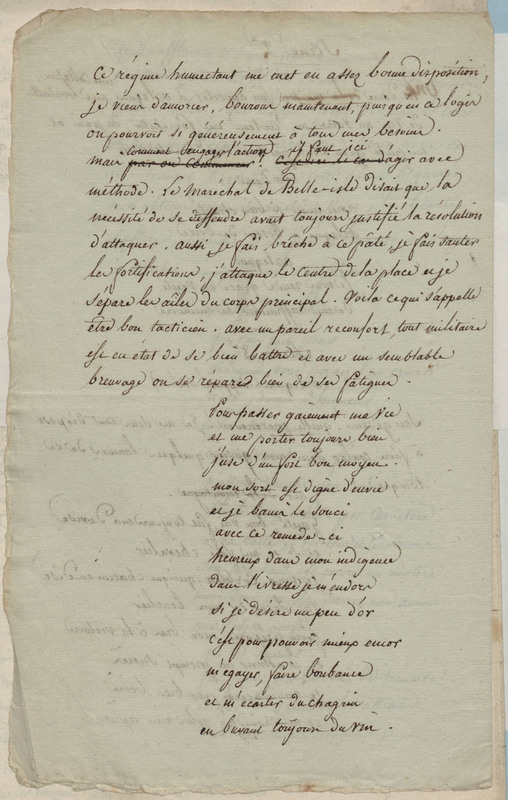 ce régime humectant me met en assez bonne disposition,
je viens d'amorcer, bourrons maintenant, puisqu'en ce logis
on pourvoit si généreusement à tous mes besoins.
mais par où commencer! comment engager l'action il faut ici d'agir avec
méthode. Le marechal de Belle-isle disait que la
nécéssité de se deffendre avait toujours justifié la résolution
d'attaquer. aussi, je fais brêche à ce pâté, je fais sauter
les fortifications, j'attaque le centre de la place et je
sépare les aîles du corps principal. Voila ce qui s'appelle
être bon tacticien. avec un pareil reconfort tout militaire
est en état de se bien battre et avec un semblable
breuvage on se répare bien de ses fatigues.
Pour passer gaiement ma vie
et me porter toujours bien
j'use d'un fort bon moyen.
mon sort est digne d'envie
et je banis le souci
avec ce remede-ci
heureux dans mon indigence
dans l'ivresse je m'endors
si je désire un peu d'or
c'est pour pouvoir mieux encor
m'égayer, faire bombance
et m'écarter du chagrin
en buvant toujours du vin.